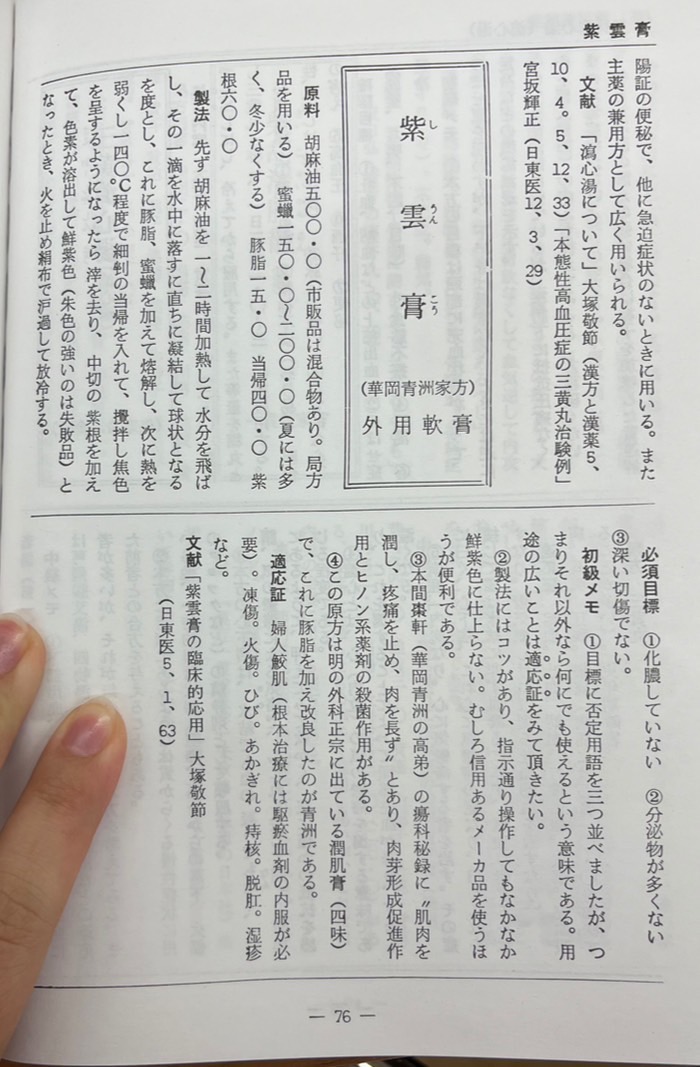 紫雲膏
陽証の便秘で、他に急迫症状のないときに用いる。また
主薬の兼用方として広く用いられる。
文献　「瀉心湯について」大塚敬節（漢方と漢薬5、
10、4。5、12、33）「本態性高血圧症の三黄丸治験例」
宮坂輝正（日東医12、3、29）
紫雲膏
し うん こう
（華岡青洲家方）
外用軟膏
原料　胡麻油五〇〇・〇（市販品は混合物あり。局方
品を用いる）　蜜蠟一五〇・〇〜二〇〇・〇（夏には多
く、冬少なくする）　豚脂一五・〇　当帰四〇・〇　紫
根六〇・〇
製法　先ず胡麻油を一〜二時間加熱して水分を飛ば
し、その一滴を水中に落すに直ちに凝結して球状となる
を度とし、これに豚脂、蜜蠟を加えて熔解し、次に熱を
弱くし一四〇℃程度で細剉の当帰を入れて、攪拌し焦色
を呈するようになったら滓を去り、中切の紫根を加え
て、色素が溶出して鮮紫色（朱色の強いのは失敗品）と
なったとき、火を止め絹布で沪過して放冷する。
必須目標　①化膿していない　②分泌物が多くない
③深い切傷でない。
初級メモ　①目標に否定用語を三つ並べましたが、つ
まりそれ以外なら何にでも使えるという意味である。用
途の広いことは適応証をみて頂きたい。
②製法にはコツがあり、指示通り操作してもなかなか
鮮紫色に仕上らない。むしろ信用あるメーカ品を使うほ
うが便利である。
③本間棗軒（華岡青洲の高弟）の瘍科秘録に〝肌肉を
潤し、疼痛を止め、肉を長ず〟とあり、肉芽形成促進作
用とヒノン系薬剤の殺菌作用がある。
④この原方は明の外科正宗に出ている潤肌膏（四味）
で、これに豚脂を加え改良したのが青洲である。
適応証　婦人鮫肌（根本治療には駆瘀血剤の内服が必
要）。凍傷。火傷。ひび。あかぎれ。痔核。脱肛。湿疹
など。
文献「紫雲膏の臨床的応用」大塚敬節
（日東医5、1、63）
― 76 ―